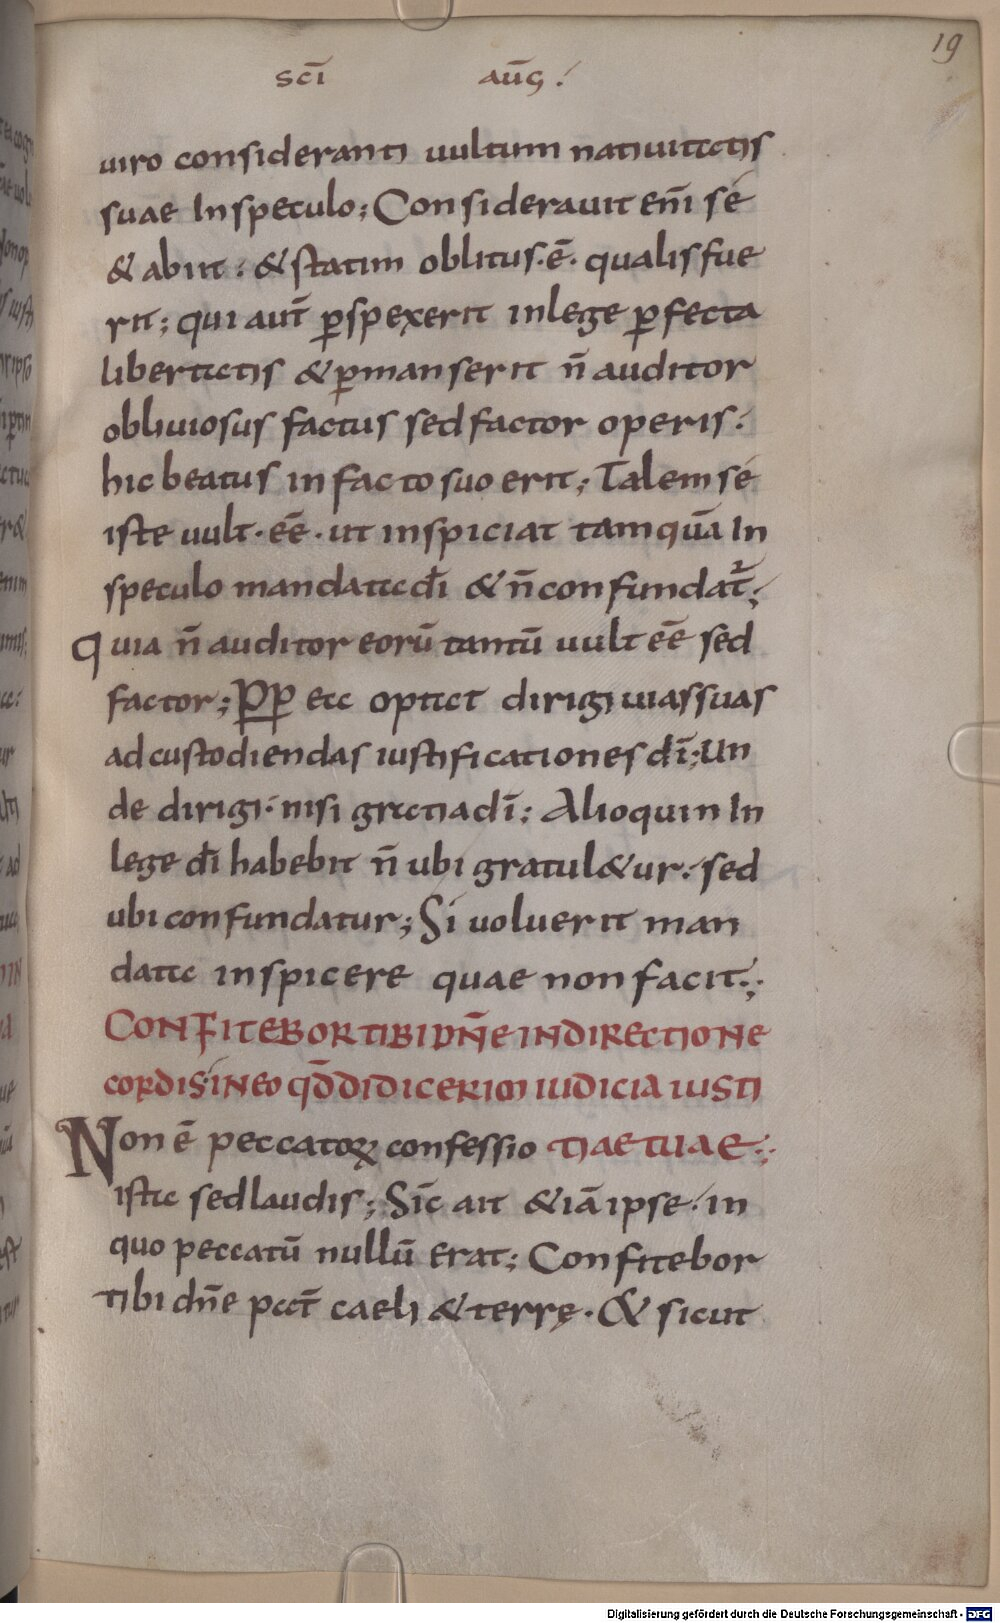 19
scī aūg:
uiro consideranti uultum natiuitatis
suae Inspeculo; Considerauit enī sé
& abiit: & statim oblitus·ē· qualis fue
rit; qui aut̄ ꝑspexerit inlege ꝑfecta
libertatis & ꝑmanserit n̄ auditor
obliuiosus factus sed factor operis:
hic beatus in facto suo erit; Talem sé
iste uult·eē·ut inspiciat tamquā In
speculo mandata dī & n̄ confundat̄;
Quia n̄ auditor eorū tantū uult eē sed
factor; ꝐꝐ ea optat dirigi uias suas
ad custodiendas iustificationes dī; Un
de dirigi· nisi gratia dī: Alioquin In
lege dī habebit n̄ ubi gratul&ur· sed
ubi confundatur; Si uoluerit man
data inspicere quae non facit:;
CONFITEBOR TIBI DÑE IN DIRECTIONE
CORDIS· IN EO qd̄ DIDICERIM IUDICIA IUSTI
Non ē peccatoꝝ confessio TIAE TUAE:;
ista sed laudis; Sīc ait &iā ipse· in
quo peccatū nullū erat; Confitebor
tibi dñe pat̄ caeli & terrę· & sicut
Digitalisierung gefördert durch die Deutsche Forschungsgemeinschaft - DFG